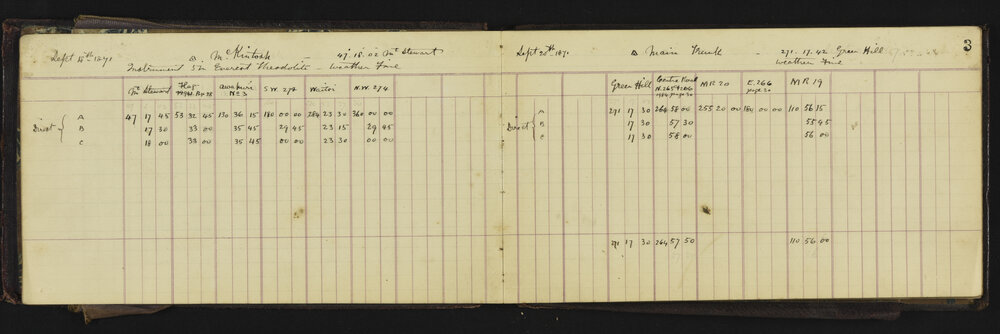 Sept 15th 1870 △ McKintosh — 47 18 02 Mt Stewart
Instrument 5 in Everest Theodolite — Weather Fine
Mt Stewart Flag S.W. 272 Waitoi N.W. 274
No 3
Direct { A 47 17 45 53 32 45 130 36 15 180 00 00 284 23 30 360 00 00
B 17 30 33 00 35 45 29 45 23 15 29 45
C 18 00 33 00 35 45 00 00 23 30 00 00
Sept 20th 1870 △ Main Trunk — 271. 17. 42 Green Hill 3
Weather Fine
Green Hill MR 20 E. 266 MR 19
page 20
Direct { A 271 17 30 264 58 00 255 20 00 180 00 00 110 56 15
B 17 30 57 30 55 45
C 17 30 58 00 56 00
271 17 30 264 57 50 110 56 00